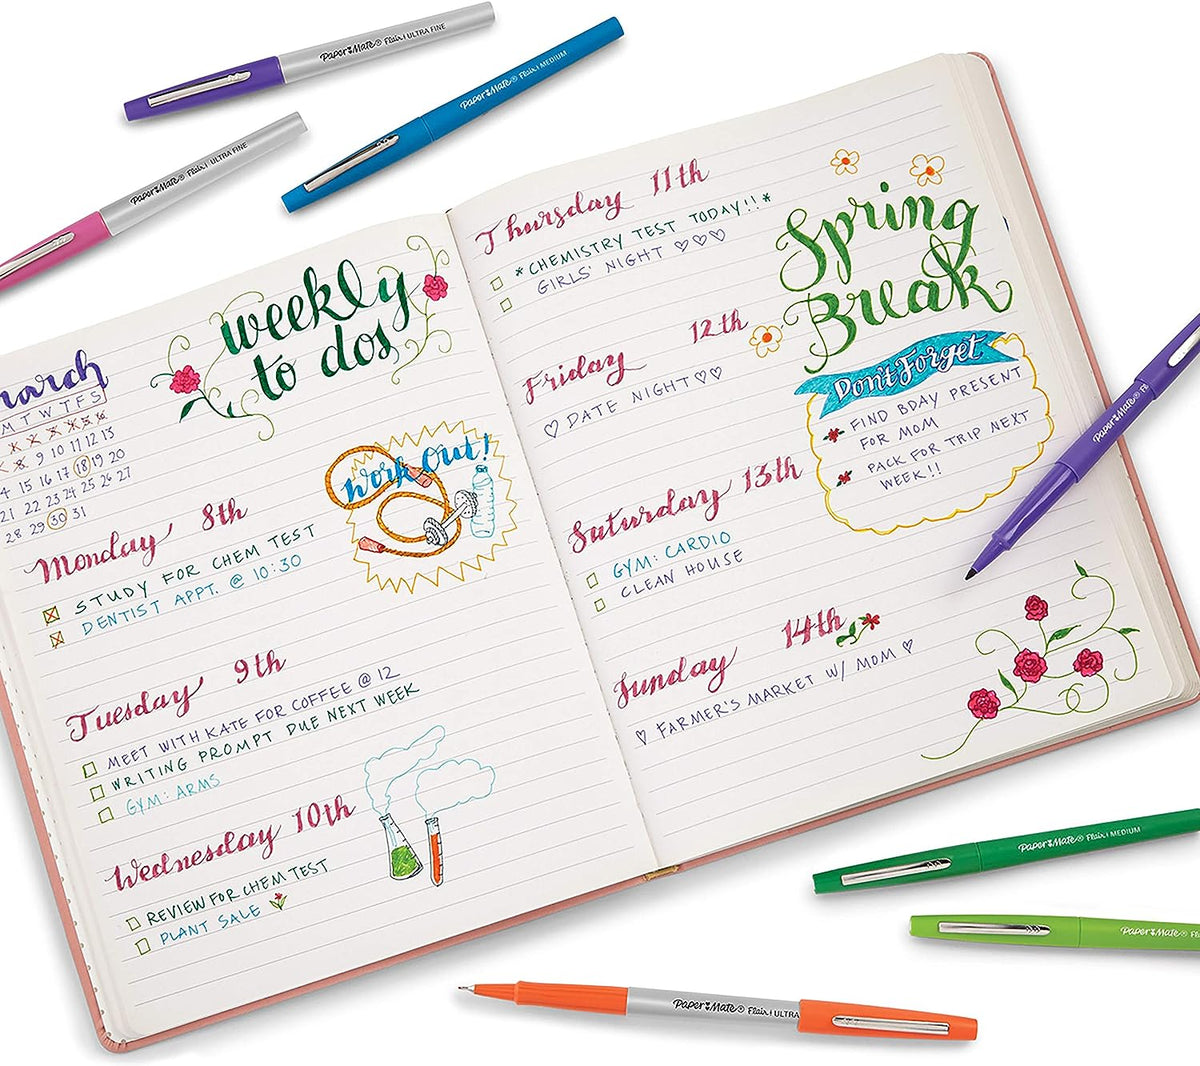 PaperMate® Flair | ULTRA FINE
PaperMate® Flair | MEDIUM
PaperMate® Flair | ULTRA FINE
March
M T W T F S
9 10 11 12 13
15 16 17 18 19 20
21 22 23 24 25 26 27
28 29 30 31
weekly
to dos
work out!
Monday 8th
STUDY FOR CHEM TEST
DENTIST APPT. @ 10:30
Tuesday 9th
MEET WITH KATE FOR COFFEE @ 12
WRITING PROMPT DUE NEXT WEEK
GYM: ARMS
Wednesday 10th
REVIEW FOR CHEM TEST
PLANT SALE
Thursday 11th
*CHEMISTRY TEST TODAY!!*
GIRLS' NIGHT ♡♡♡
Friday 12th
♡ DATE NIGHT ♡♡
Saturday 13th
GYM: CARDIO
CLEAN HOUSE
Sunday 14th
♡ FARMER'S MARKET W/ MOM ♡
Spring
Break
Don't Forget
FIND BDAY PRESENT
FOR MOM
PACK FOR TRIP NEXT
WEEK!!
PaperMate®
PaperMate® Flair | MEDIUM
PaperMate®
PaperMate® Flair | ULTRA